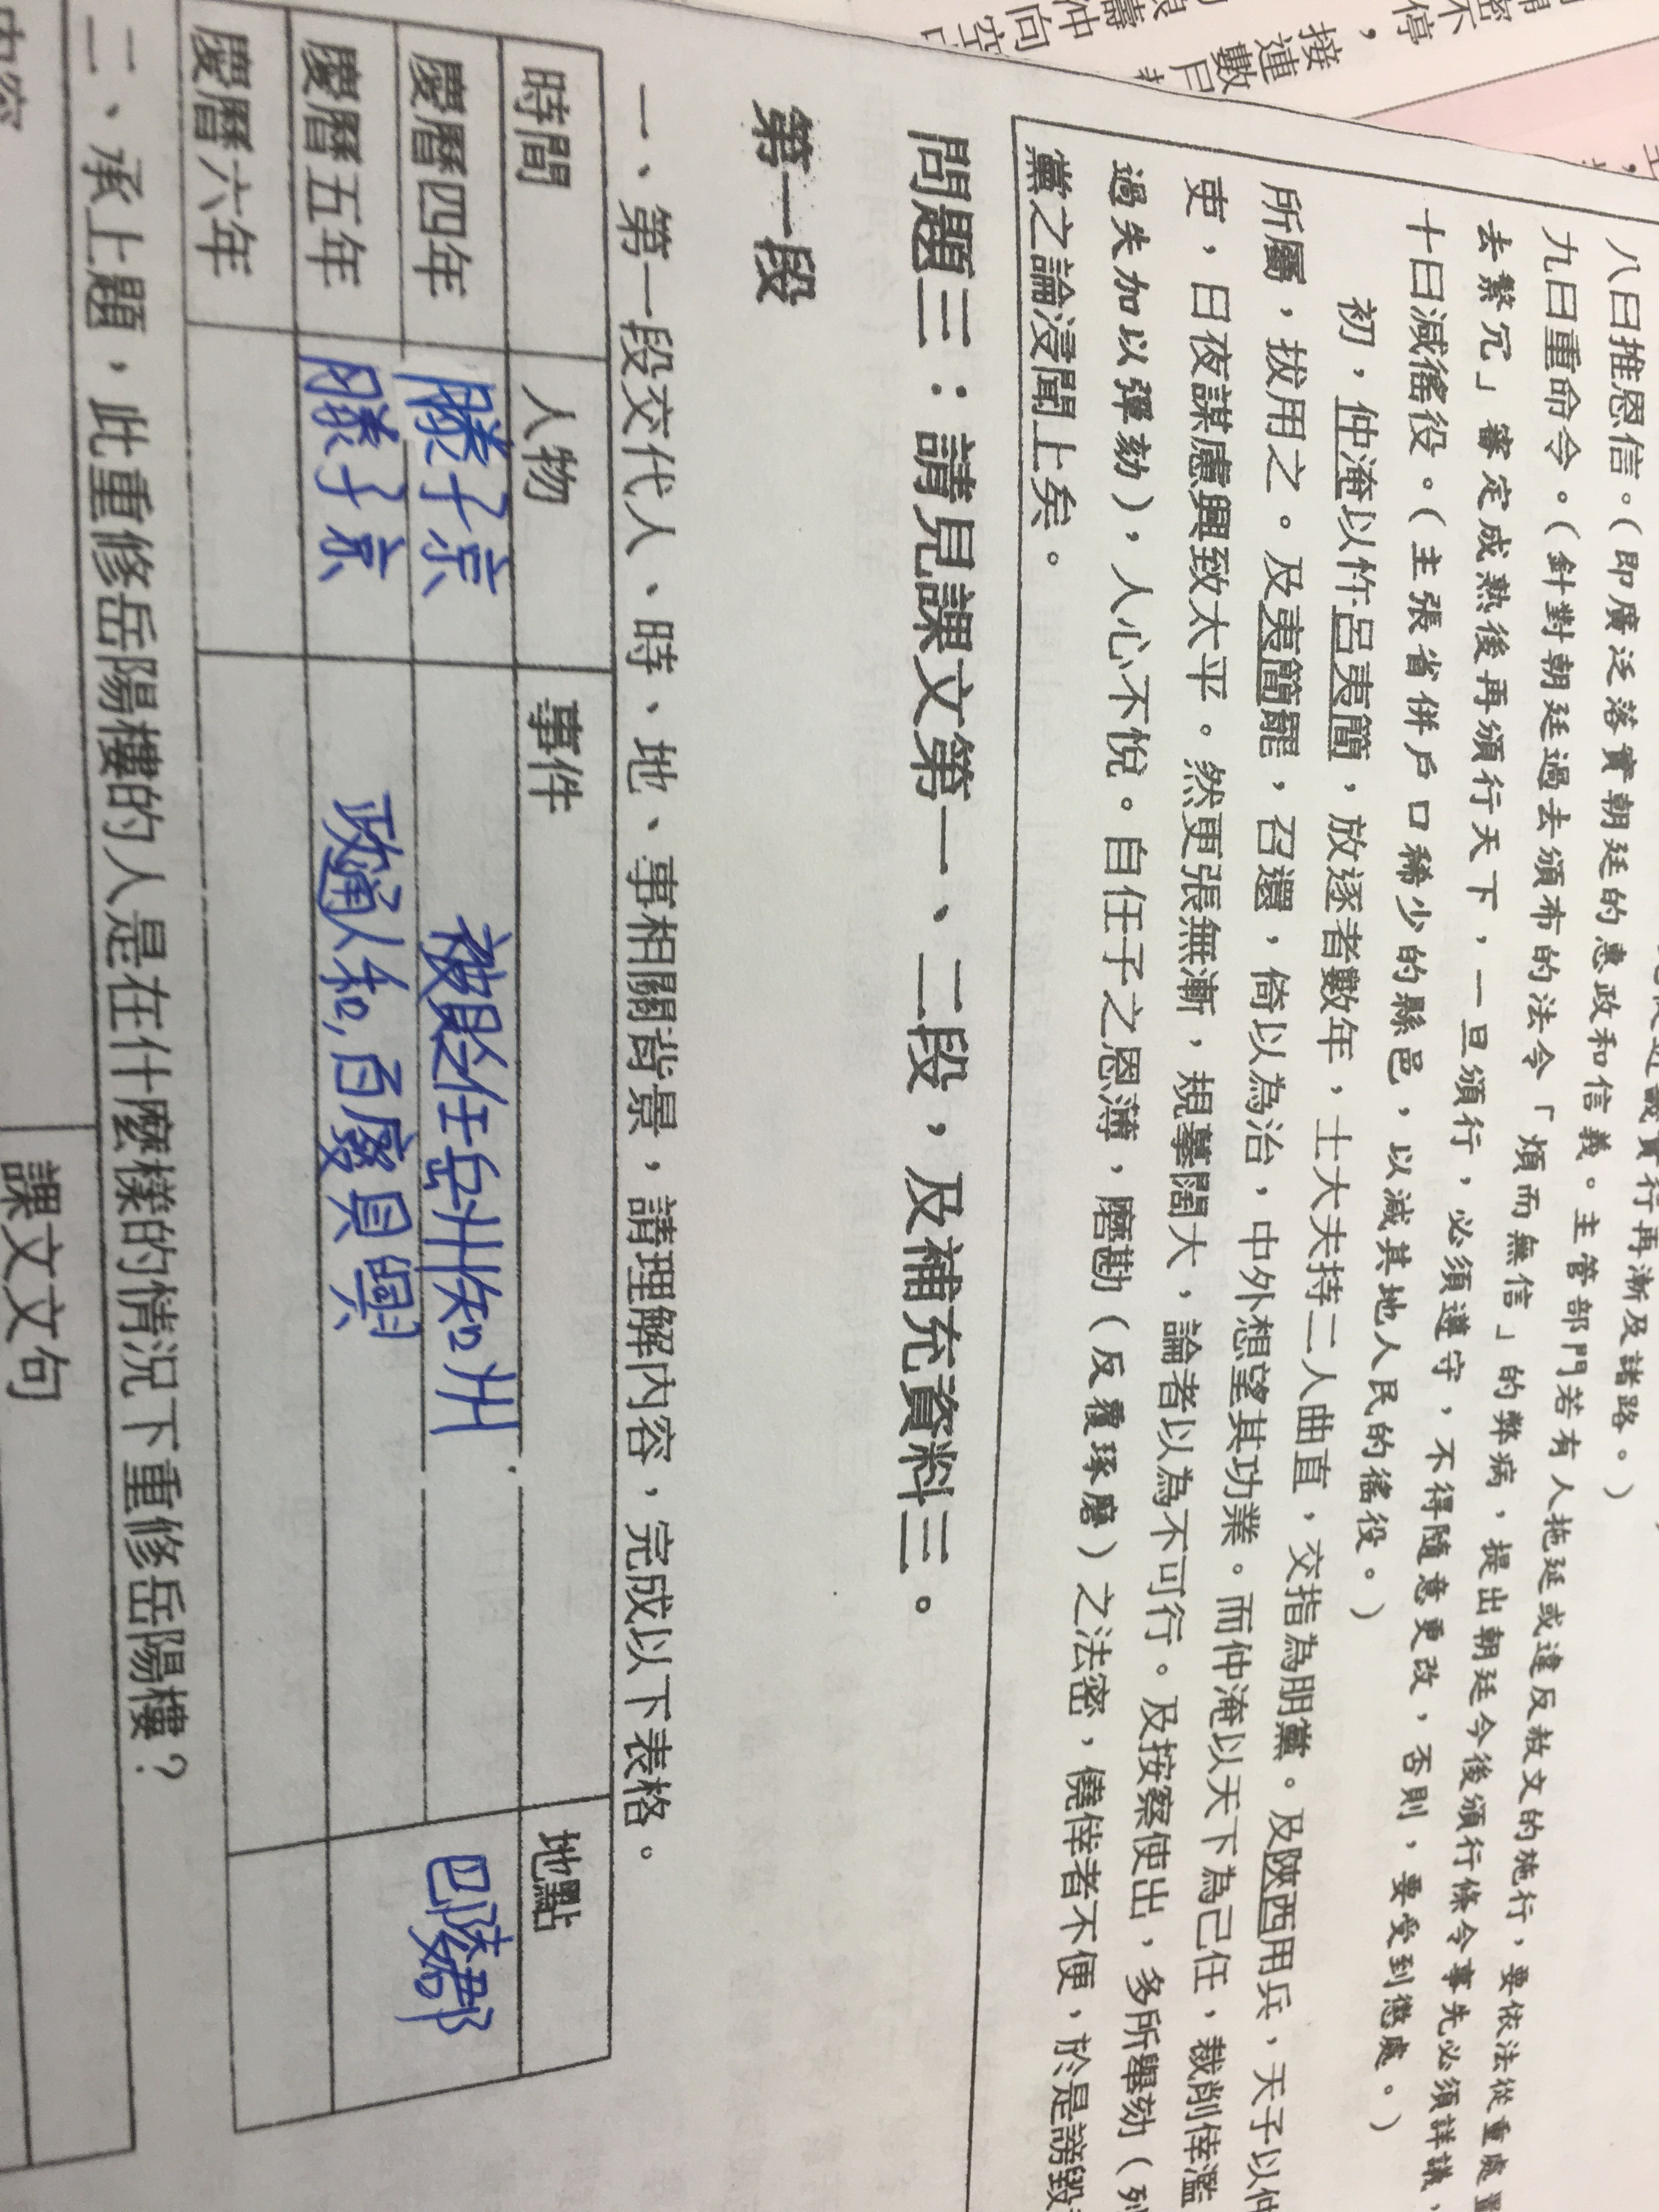 實行再漸及諸路。）
八曰推恩信。（即廣泛落實朝廷的惠政和信義。主管部門若有人拖延或違反赦文的施行，要依法從重處置
九曰重命令。（針對朝廷過去頒布的法令「煩而無信」的弊病，提出朝廷今後頒行條令事先必須詳議，
去繁冗」審定成熟後再頒行天下，一旦頒行，必須遵守，不得隨意更改，否則，要受到懲處。）
十曰減徭役。（主張省併戶口稀少的縣邑，以減其地人民的徭役。）
初，仲淹以忤呂夷簡，放逐者數年，士大夫持二人曲直，交指為朋黨。及陝西用兵，天子以仲
所屬，拔用之。及夷簡罷，召還，倚以為治，中外想望其功業。而仲淹以天下為己任，裁削倖濫
吏，日夜謀慮興致太平。然更張無漸，規摹闊大，論者以為不可行。及按察使出，多所舉劾（列
過失加以彈劾），人心不悅。自任子之恩薄，磨勘（反覆琢磨）之法密，僥倖者不便，於是謗毀
黨之論浸聞上矣。
問題三：請見課文第一、二段，及補充資料三。
第一段
一、第一段交代人、時、地、事相關背景，請理解內容，完成以下表格。
時間 人物 事件 地點
慶曆四年 滕子京 被貶任岳州知州 巴陵郡
慶曆五年 滕子京 政通人和，百廢具興
慶曆六年
二、承上題，此重修岳陽樓的人是在什麼樣的情況下重修岳陽樓？
內容 課文文句
接連數戶